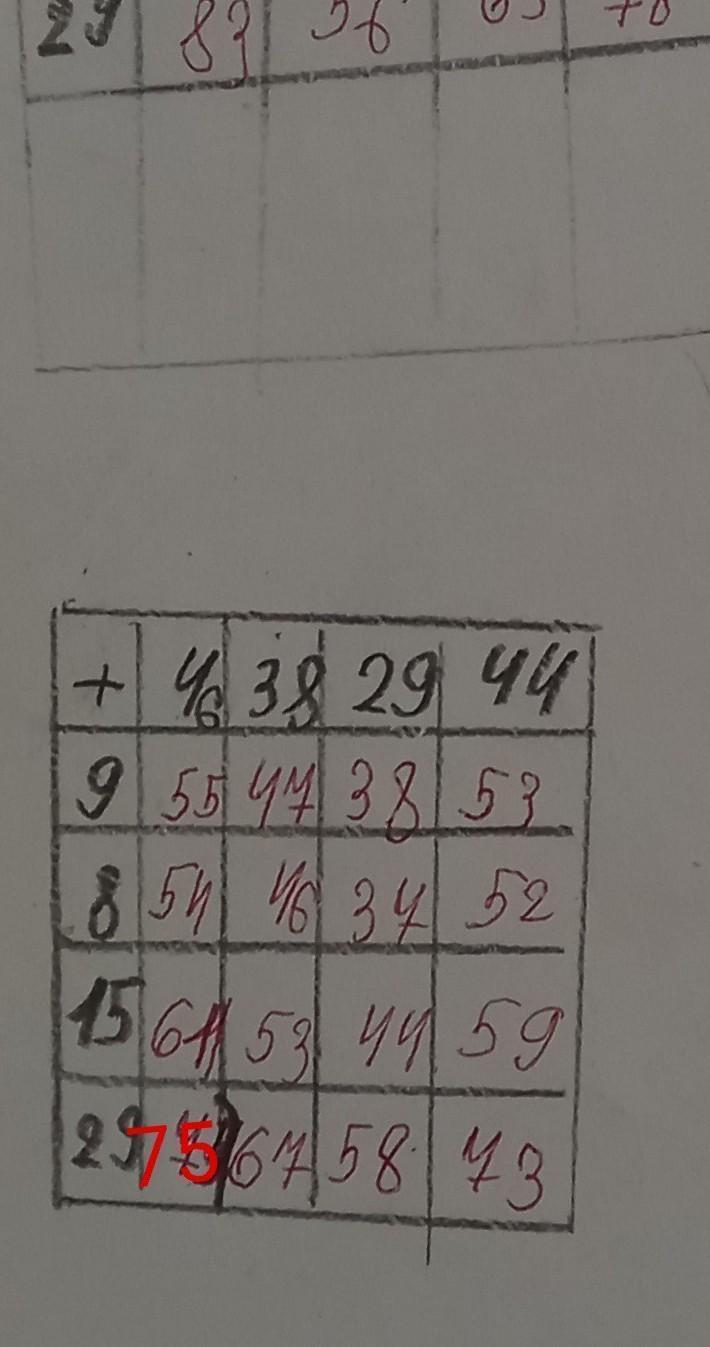 29 83 56 65
+ 46 38 29 44
9 55 47 38 53
8 54 46 37 52
15 61 53 44 59
29 75 67 58 73